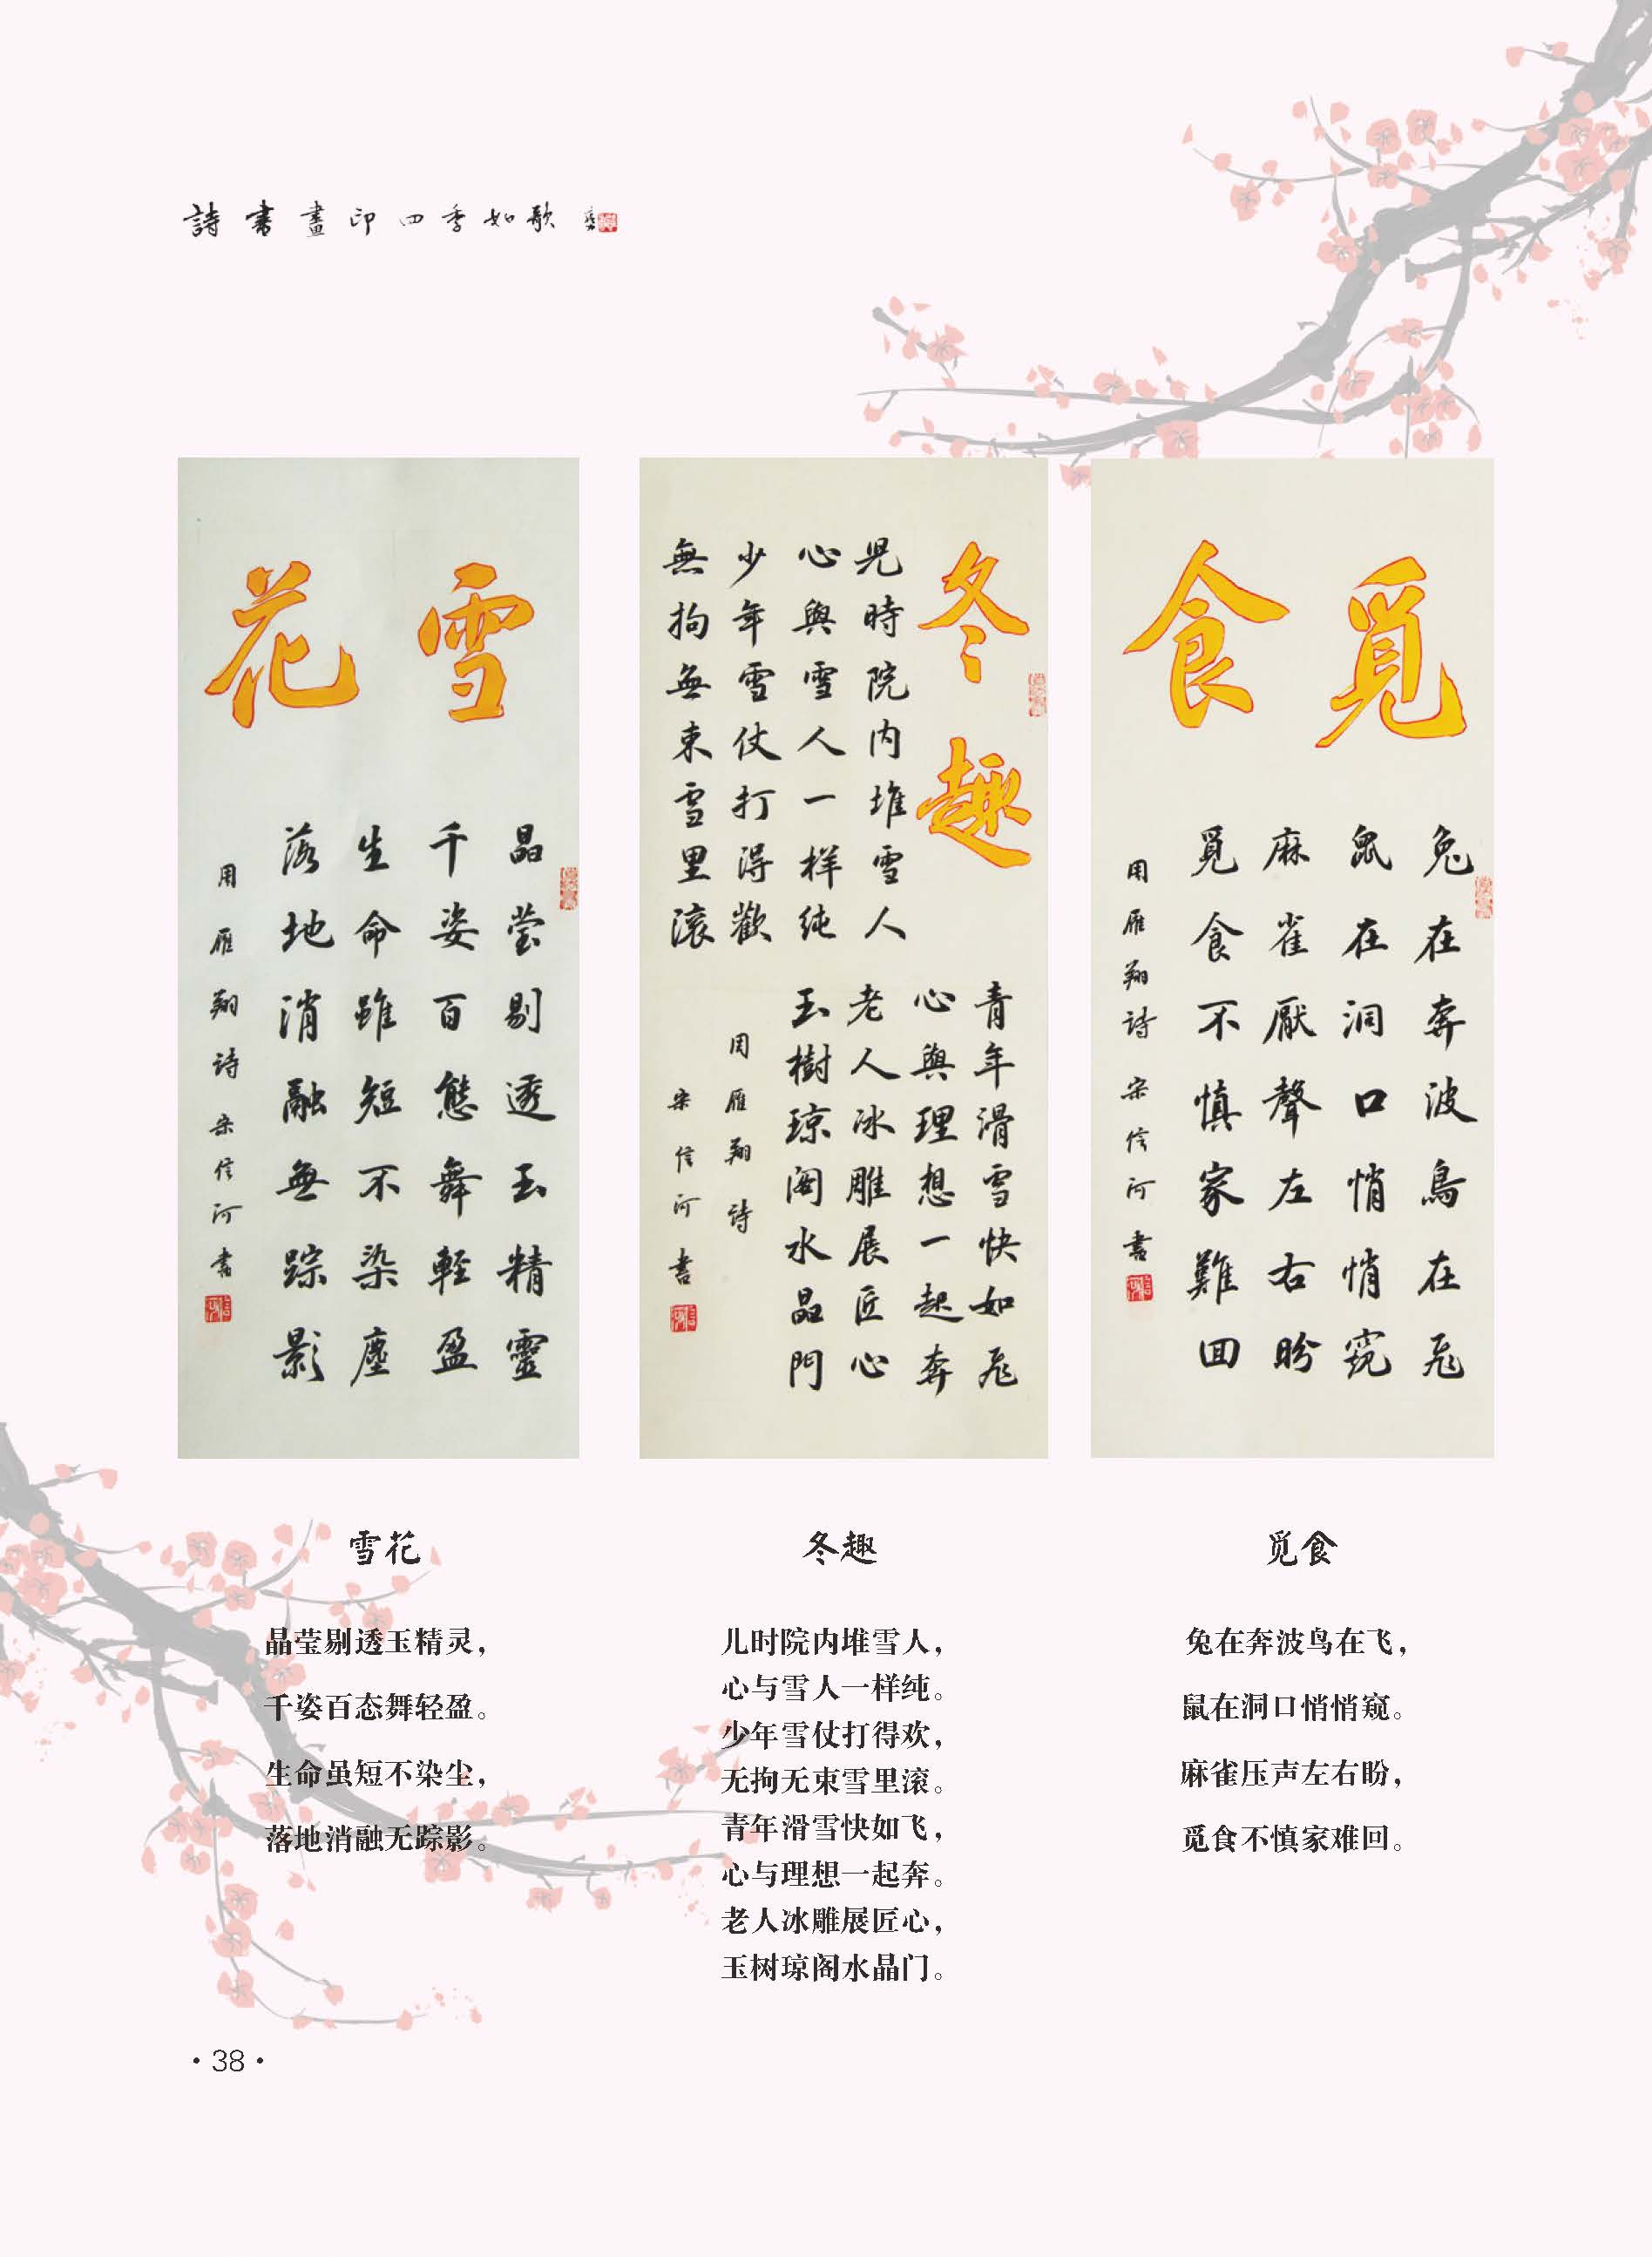 詩書畫印四季如歌
雪花
晶莹剔透玉精靈
千姿百態舞輕盈
生命雖短不染塵
落地消融無踪影
周雁翔诗 宋信河书
冬趣
兒時院内堆雪人
心與雪人一样纯
少年雪仗打得歡
無拘無束雪里滚
青年滑雪快如飛
心與理想一起奔
老人冰雕展匠心
玉樹琼阁水晶門
周雁翔诗
宋信河書
覓食
兔在奔波鳥在飛
鼠在洞口悄悄窥
麻雀壓聲左右盼
覓食不慎家難回
周雁翔诗 宋信河書
雪花
晶莹剔透玉精灵，
千姿百态舞轻盈。
生命虽短不染尘，
落地消融无踪影。
冬趣
儿时院内堆雪人，
心与雪人一样纯。
少年雪仗打得欢，
无拘无束雪里滚。
青年滑雪快如飞，
心与理想一起奔。
老人冰雕展匠心，
玉树琼阁水晶门。
觅食
兔在奔波鸟在飞，
鼠在洞口悄悄窥。
麻雀压声左右盼，
觅食不慎家难回。
·38·